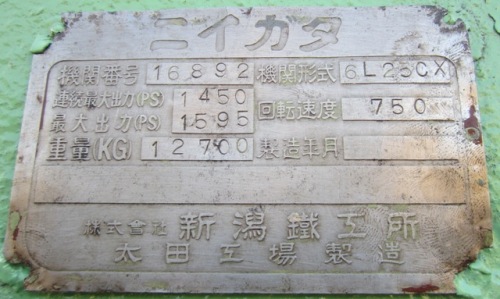 ニイガタ
機関番号 16892 機関形式 6L25CX
連続最大出力(PS) 1450 回転速度 750
最大出力(PS) 1595
重量(KG) 12700 製造年月
株式會社 新潟鐵工所
太田工場製造